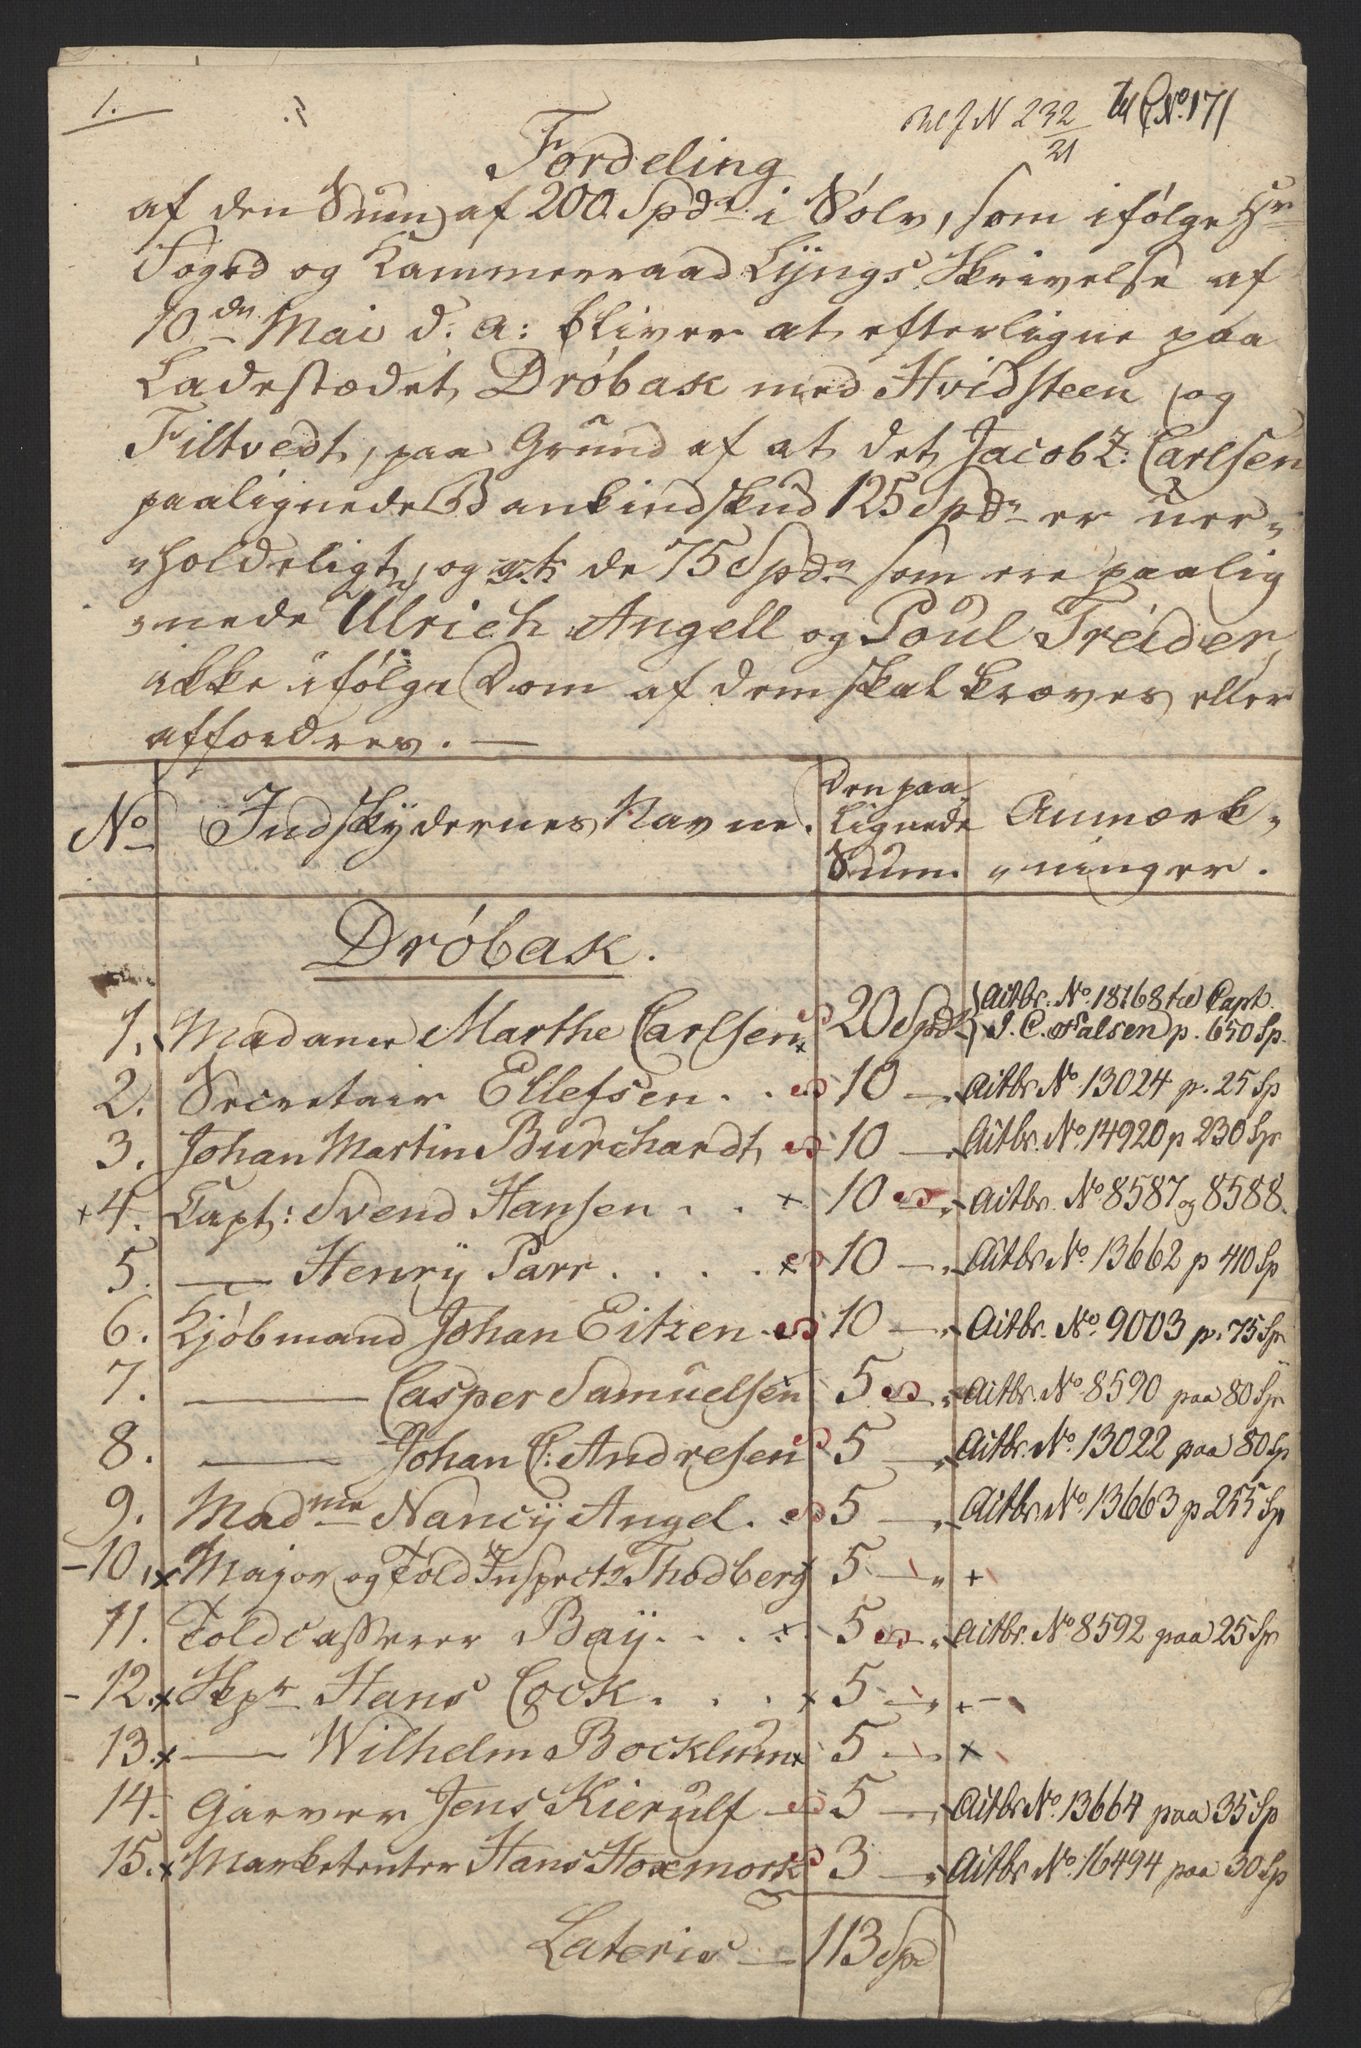 1.
N 232/21 No. 171
Fordeling
af den Sum af 200 Spdr i Sølv, som ifølge Hr
Foged og Kammerraad Lyngs Skrivelse af
10de Mai d: a: bliver at efterligne paa
Ladestædet Drøbak med Hvidsteen og
Filtvedt, paa Grund af at det Jacob Z: Carlsen
paalignede Bankindskud 125 Spdr er uer-
"holdeligt, og de 75 Spdr som ere paalig
"nede Ulrich Angell og Poul Treider,
ikke ifølge Dom af dem skal kræves eller
affordres. —
No Indskydernes Navne. Den paa lignede Sum. Anmærk"ninger.
Drøbak.
1. Madame Marthe Carlsen 20 Spdr Qitbr. No. 18768 til Capt.
J. C. Falsen p. 650 Sp.
2. Secretair Ellefsen . . 10 — " Qitbr No 13024 p. 25 Sp
3. Johan Martin Burchardt 10 — " Qitbr. No 14920 p 230 Sp
+ 4. Capt: Svend Hansen . . x 10 " Qitbr. No 8587 og 8588.
5. — Henrÿ Parr . . . . x 10 — " Qitbr No. 13662 p 410 Sp
6. Kjøbmand Johan Eitzen 10 — " Qitbr. No. 9003 p. 75 Sp
7. — Casper Samuelsen 5 — " Qitbr. No 8590 paa 80 Sp
8. — Johan C: Andresen 5 — " Qitbr. No. 13022 paa 80 Sp
9. Madme Nancÿ Angel. 5 — " Qitbr No. 13663 p 255 Sp
- 10. x Major og Told Inspectr Thodberg 5 — " +
11. Toldcasserer Baÿ. . . . x 5 — " Qitbr. No 8592 paa 25 Sp
- 12. x Skpr Hans Cock. . . x 5 — " + -
13. x — Wilhelm Bocklum x 5 — " x
14. Garver Jens Kierulf 5 — " Qitbr No. 13664 paa 35 Sp
15. x Marketenter Hans Hoxmork 3 — " Qitbr No. 16494 paa 30 Sp
Lateris — 113 Spd